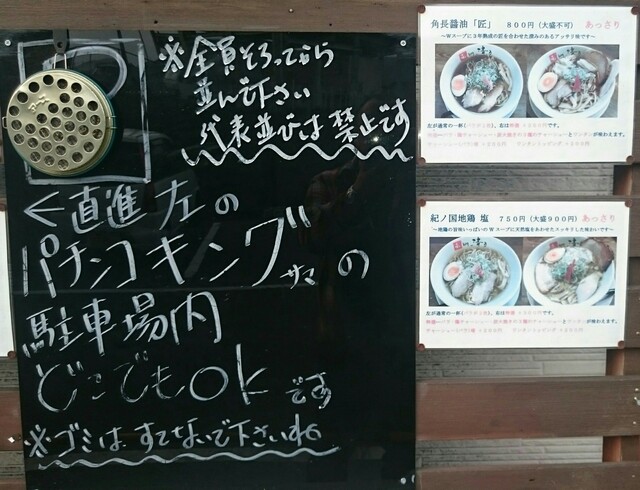 ※全員そろってから
並んで下さい
代表並びは禁止です
←直進左の
パチンコキングサマの
駐車場内
どこでもOKです
※ゴミはすてないで下さいね
角長醤油「匠」 800円(大盛不可) あっさり
~Wスープに3年熟成の匠を合わせた深みのあるアッサリ味です~
紀ノ国地鶏 塩 750円(大盛900円) あっさり
~地鶏の旨味いっぱいのWスープに天然塩をあわせたスッキリした味わいです~